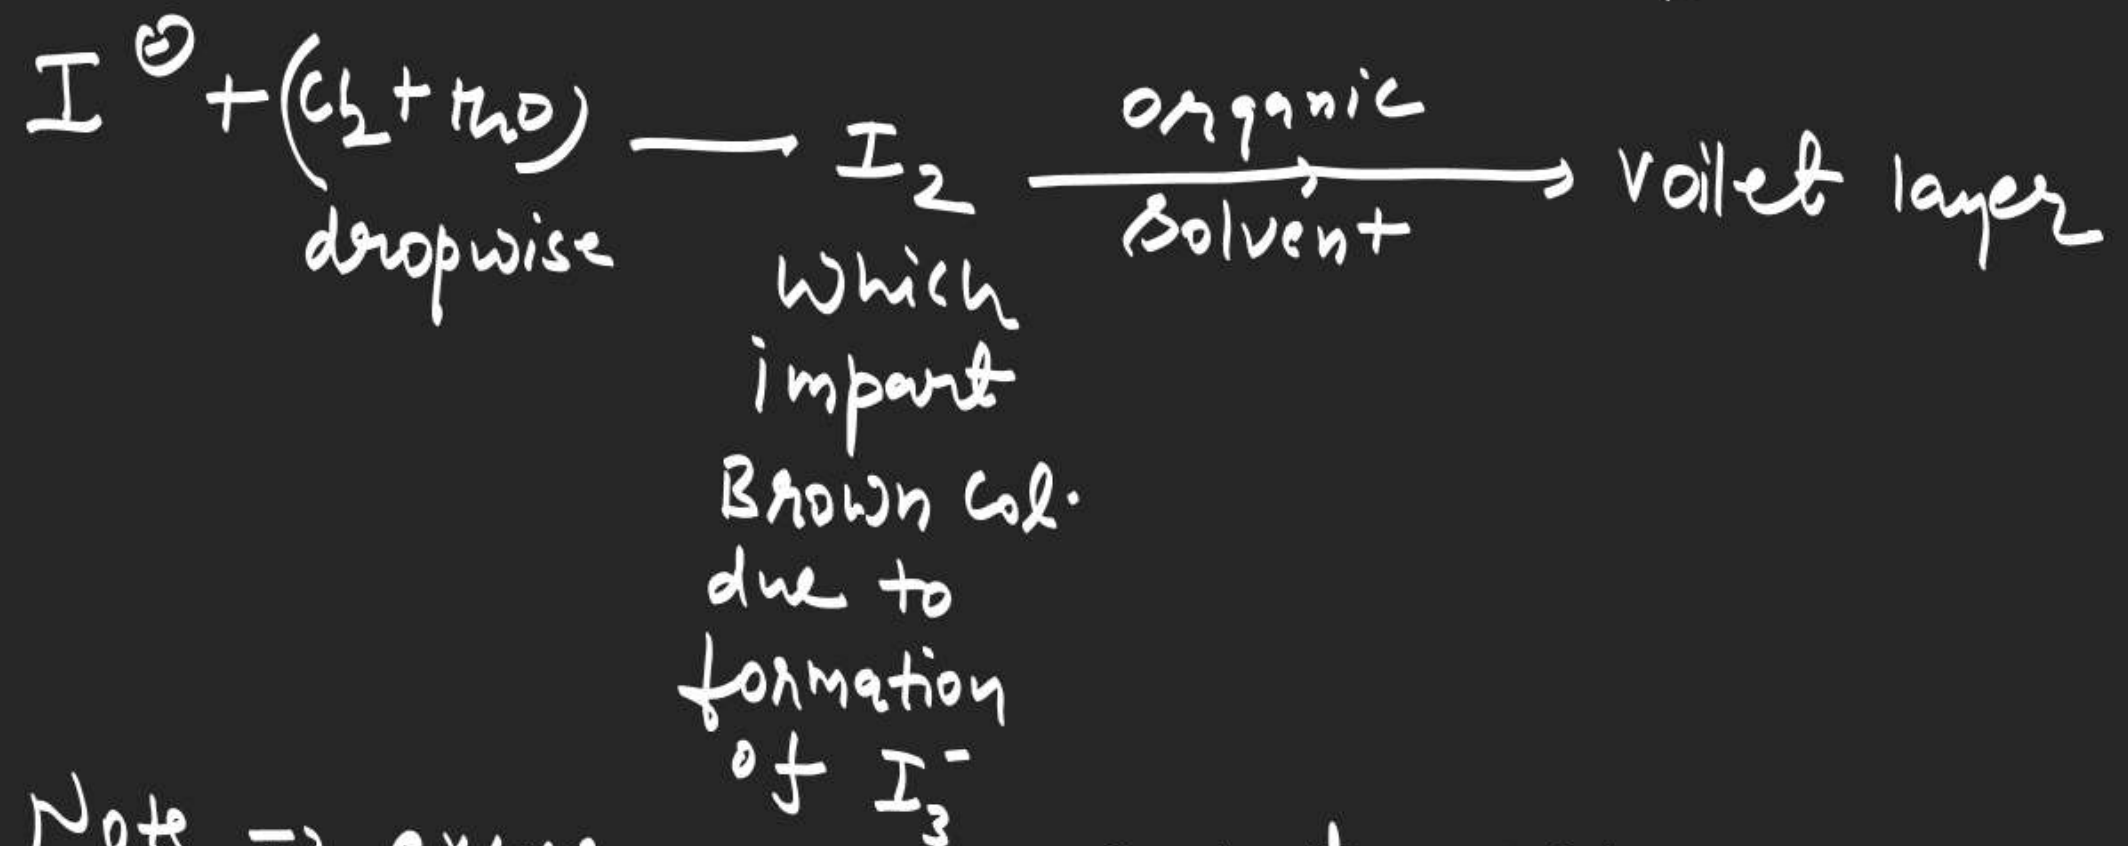 I⊖ + (Cl₂ + H₂O) → I₂ organic solvent → Voilet layer
dropwise
which
impart
Brown Col.
due to
formation
of I₃⁻
Note →